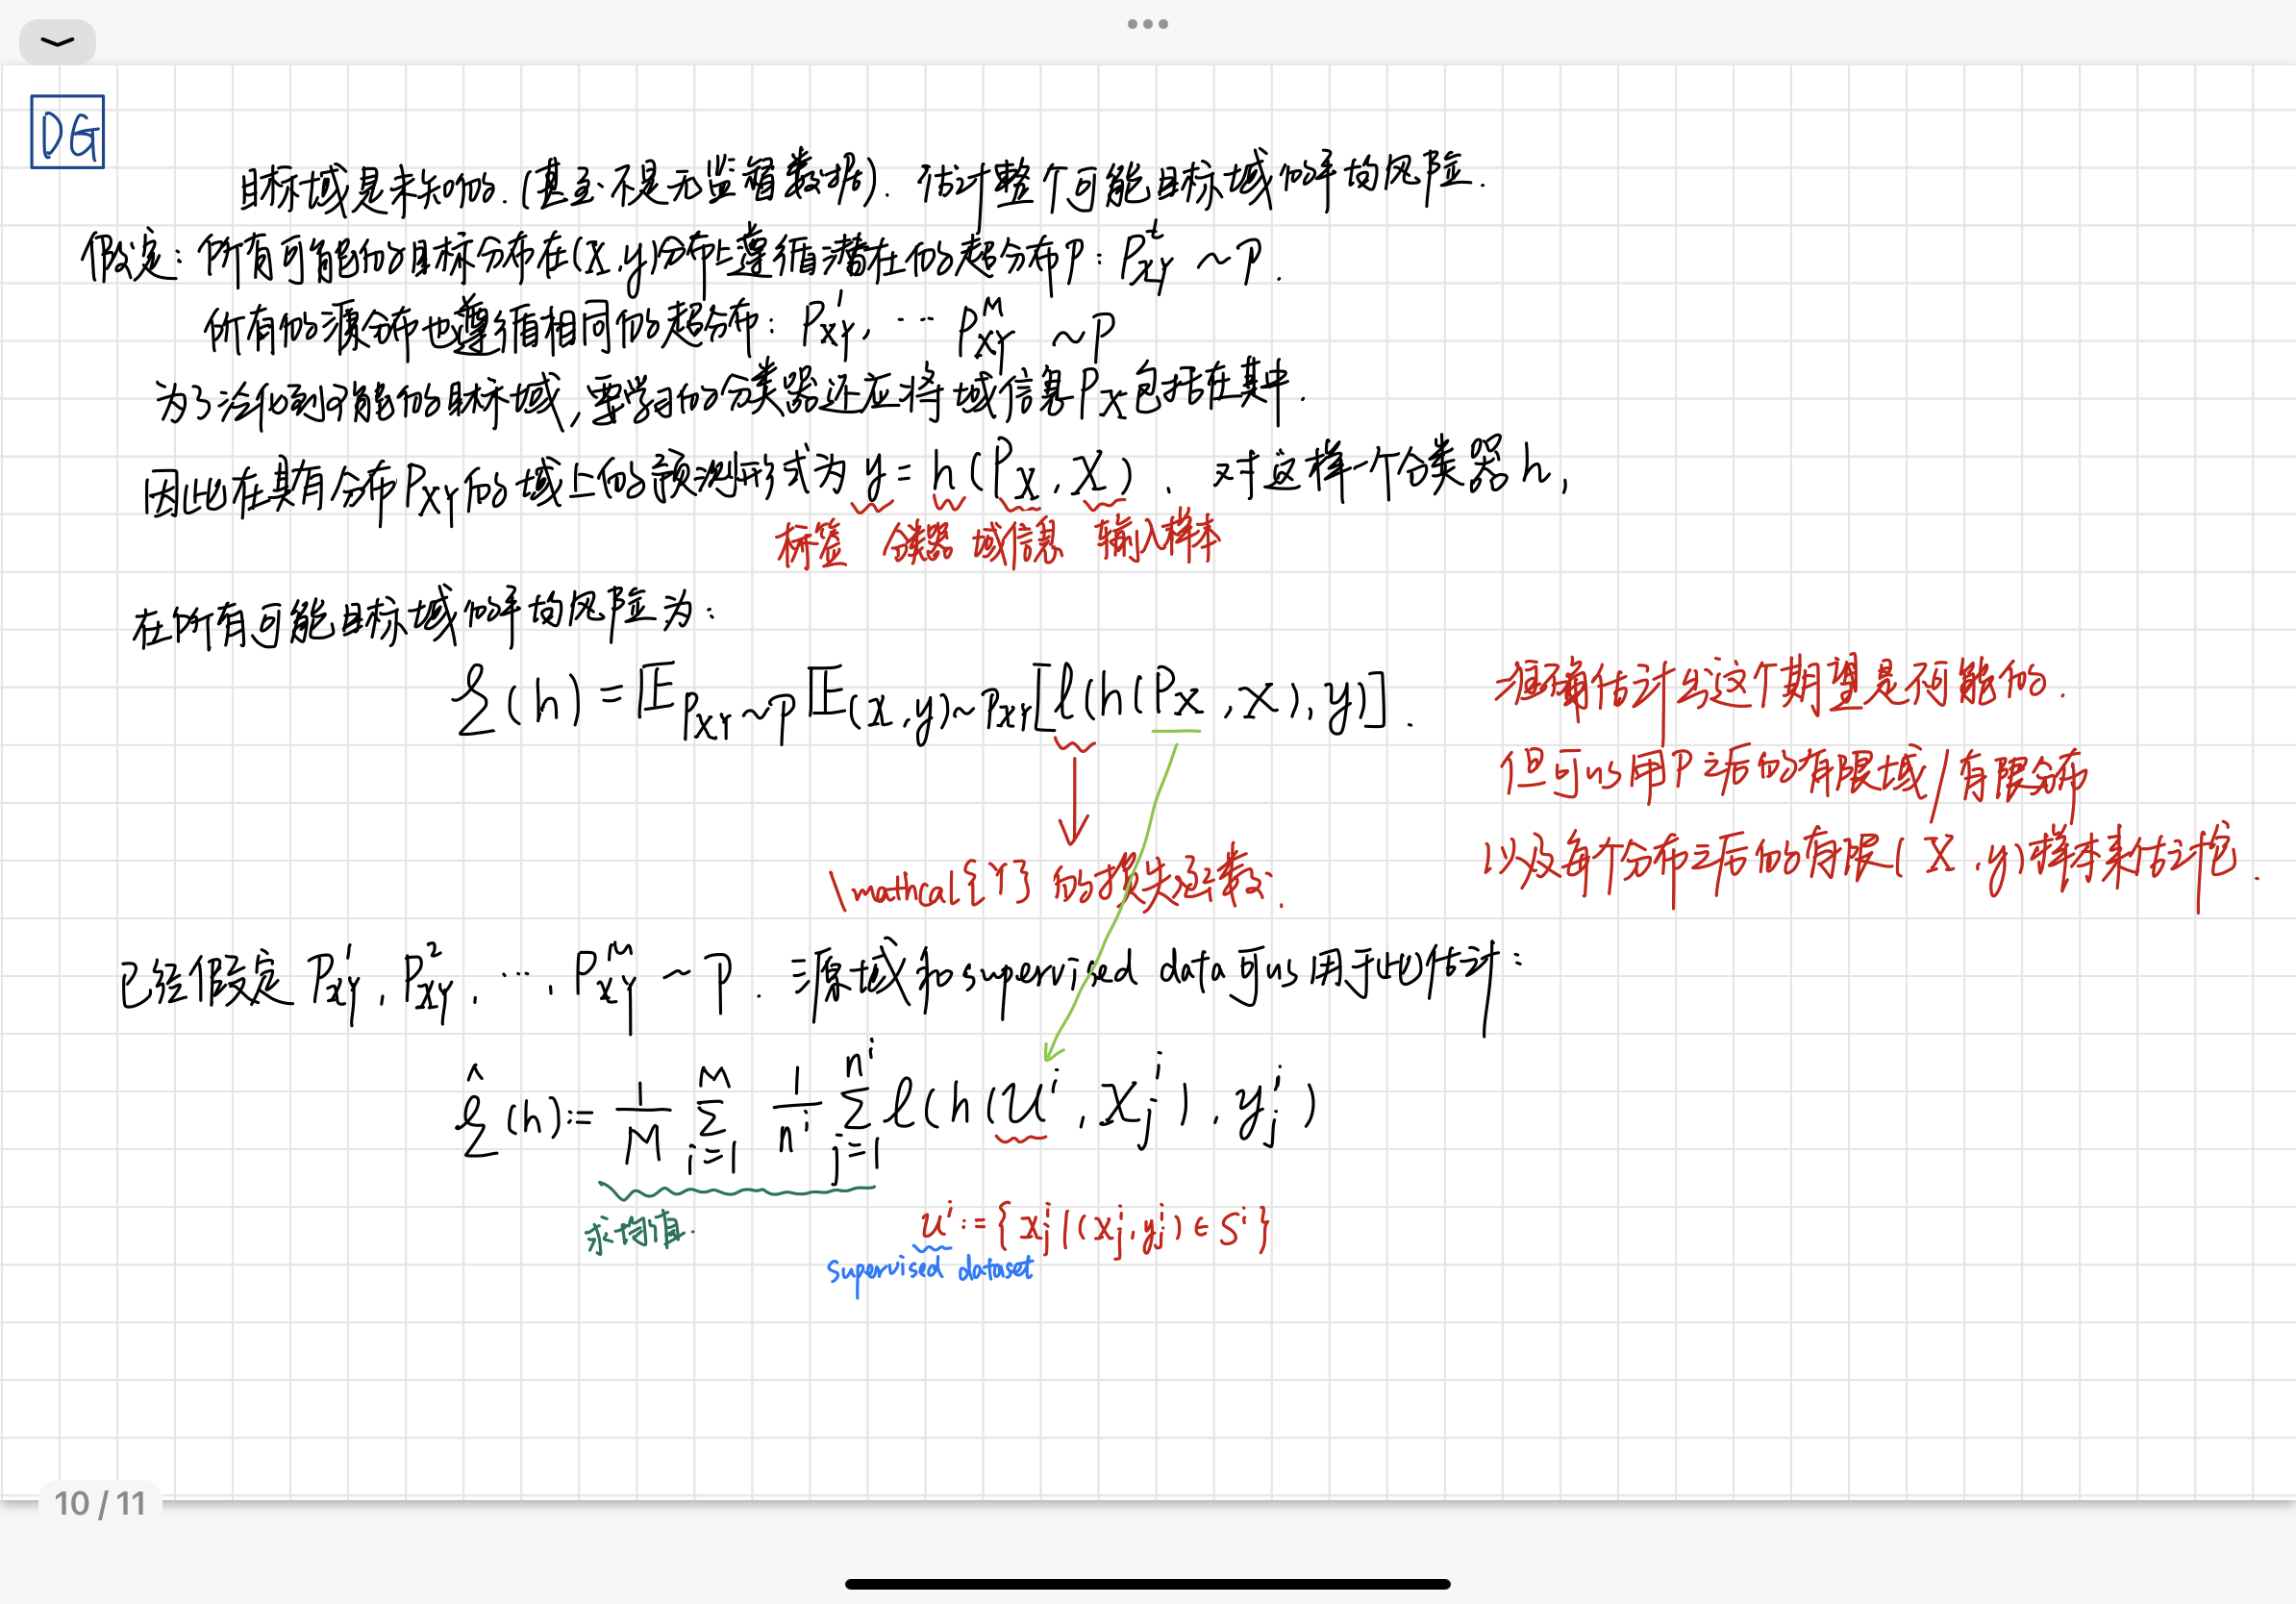 DG
目标域是未知的.(甚至不是无监督数据). 估计整个可能目标域的平均风险.
假定: 所有可能的目标分布在(X,y)分布上遵循潜在的超分布P: P^t_{XY} ~P.
所有的源分布也遵循相同的超分布: P^1_{XY}, … P^M_{XY} ~P
为了泛化到可能的目标域,要学习的分类器还应将域信息P_X包括在其中.
因此在具有分布P_{XY}的域上的预测形式为 y=h(P_X,X). 对于这样一个分类器h,
标签 分类器 域信息 输入样本
在所有可能目标域的平均风险为:
ℰ(h)=𝔼_{P_{XY}~P}𝔼_{(X,y)~P_{XY}}[ℓ(h(P_X,X),y)].
准确估计出这个期望是不可能的.
但可以用P之后的有限域/有限分布
以及每个分布之后的有限(X,y)样本来估计它.
\mathcal{Y} 的损失函数.
已经假定 P^1_{XY}, P^2_{XY}, …, P^M_{XY} ~P. 源域和supervised data可以用于此估计:
ℰ̂(h):= 1/M ∑_{i=1}^{M} 1/n^i ∑_{j=1}^{n^i} ℓ(h(U^i,X^i_j),y^i_j)
求均值.
U^i:={X^i_j|(X^i_j,y^i_j)∈S^i}
supervised dataset
10 / 11